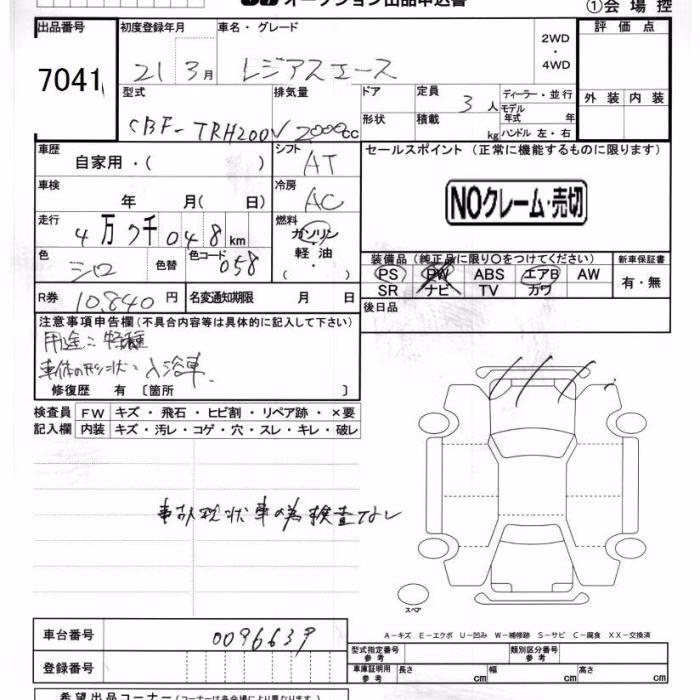 オークション出品申込書
①会場控
出品番号 初度登録年月 車名・グレード 2WD・4WD 評価点
7041 21 3月 レジアスエース
型式 排気量 ドア 定員 3人 ディーラー・並行 外装 内装
CBF-TRH200V 2000cc 形状 積載 kg モデル年式 年
ハンドル 左・右
車歴 自家用・( ) シフト AT セールスポイント (正常に機能するものに限ります)
車検 年 月( 日) 冷房 AC NOクレーム・売切
走行 4万7千048km 燃料 ガソリン 軽油 ( ・ )
色 シロ 色替 色コード 058 装備品 (純正品に限り○をつけてください) 新車保証書
PS PW ABS エアB AW 有・無
SR ナビ TV カワ
R券 10,840円 名変通知期限 月 日 後日品
注意事項申告欄 (不具合内容等は具体的に記入して下さい)
用途:特種
車体の形状:入浴車
修復歴 有 〔箇所 〕
検査員 FW キズ・飛石・ヒビ割・リペア跡・×要
記入欄 内装 キズ・汚レ・コゲ・穴・スレ・キレ・破レ
事故現状車の為検査なし
スペア
A-キズ E-エクボ U-凹み W-補修跡 S-サビ C-腐食 XX-交換済
車台番号 0096639 型式指定番号 参考 類別区分番号 参考
登録番号 車庫証明用 参考 長さ cm 幅 cm 高さ cm
希望出品コーナー (コーナーは各会場により異なります。)